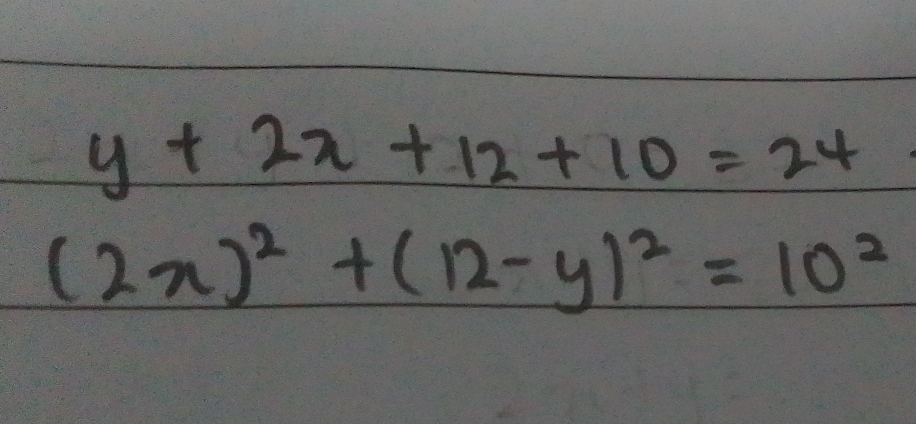 y + 2x + 12 + 10 = 24
(2x)² + (12 - y)² = 10²